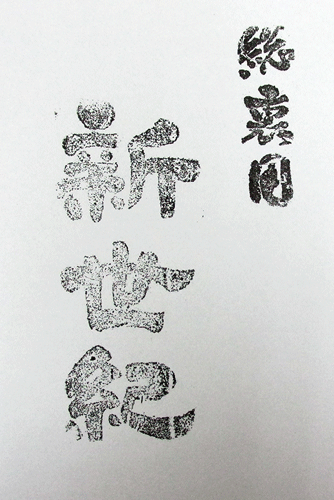 総裏目
新世紀